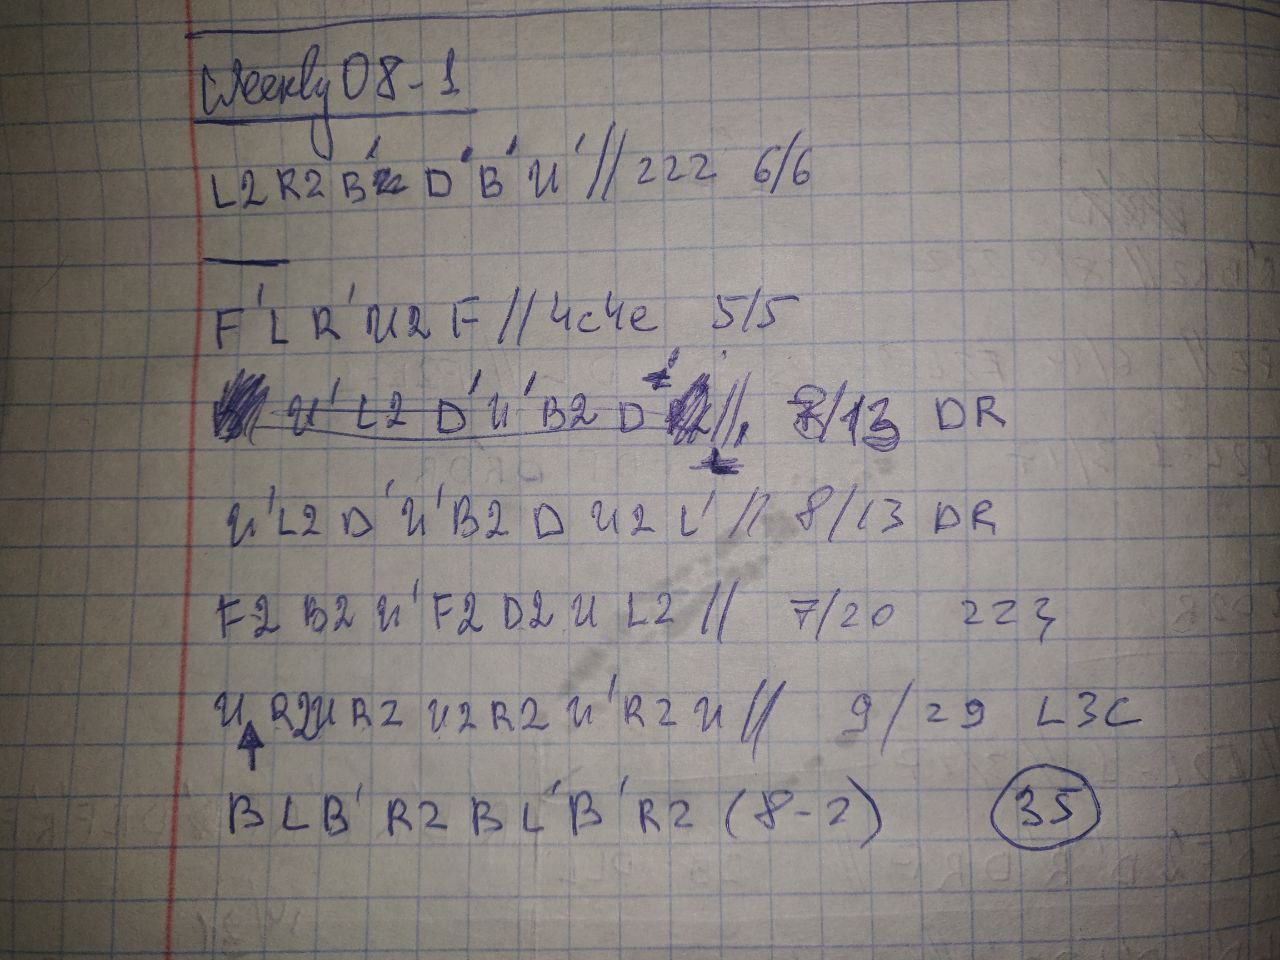 Weekly 08-1
L2 R2 B' D' B' U' // 222 6/6
F' L R' U2 F // 4c4e 5/5
U' L2 D' U' B2 D // 8/13 DR
U' L2 D' U' B2 D U2 L' // 8/13 DR
F2 B2 U' F2 D2 U L2 // 7/20 223
U R2 U R2 U2 R2 U' R2 U // 9/29 L3C
B L B' R2 B L' B' R2 (8-2) 35